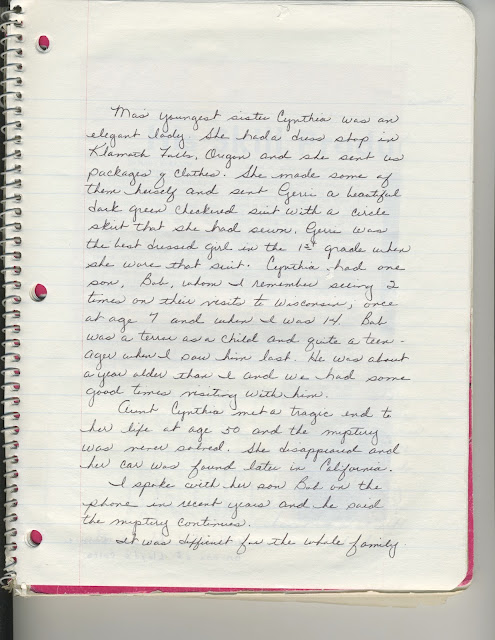 Ma's youngest sister Cynthia was an
elegant lady. She had a dress shop in
Klamath Falls, Oregon and she sent us
packages of clothes. She made some of
them herself and sent Gerri a beautiful
dark green checkered suit with a circle
skirt that she had sewn. Gerri was
the best dressed girl in the 1st grade when
she wore that suit. Cynthia had one
son, Bob, whom I remember seeing 2
times on their visits to Wisconsin; once
at age 7 and when I was 14. Bob
was a terror as a child and quite a teen-
ager when I saw him last. He was about
a year older than I and we had some
good times visiting with him.
Aunt Cynthia met a tragic end to
her life at age 50 and the mystery
was never solved. She disappeared and
her car was found later in California.
I spoke with her son Bob on the
phone in recent years and he said
the mystery continues.
It was difficult for the whole family.